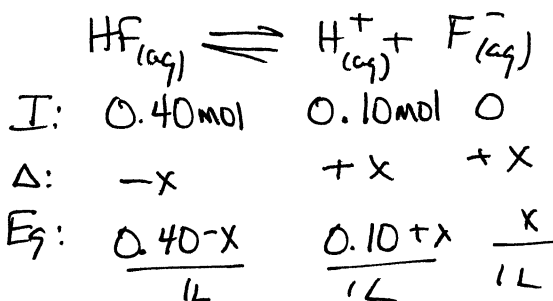 HF(aq) ⇌ H+(aq) + F-(aq)
I: 0.40mol 0.10mol 0
Δ: -x +x +x
Eq: 0.40-x/1L 0.10+x/1L x/1L